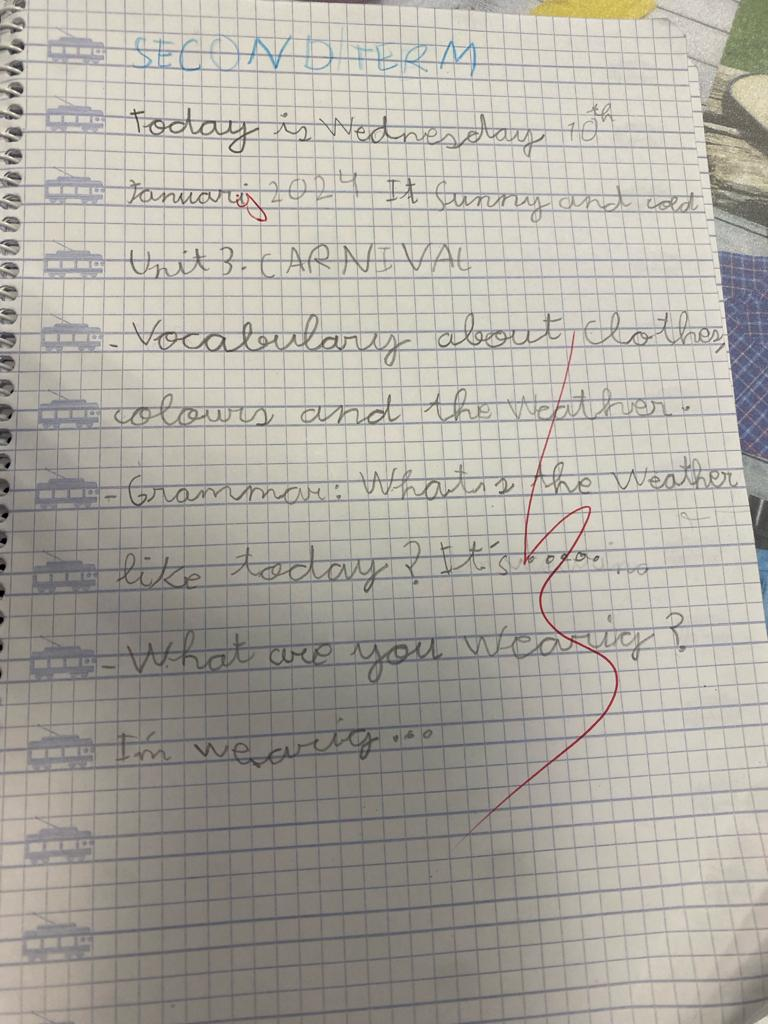 SECOND TERM
Today is Wednesday 10th
January 2024 It Sunny and cold
Unit 3. CARNIVAL
- Vocabulary about clothes,
colours and the weather.
- Grammar: What is the Weather
like today? It's ........
- What are you wearig?
I'm wearig...